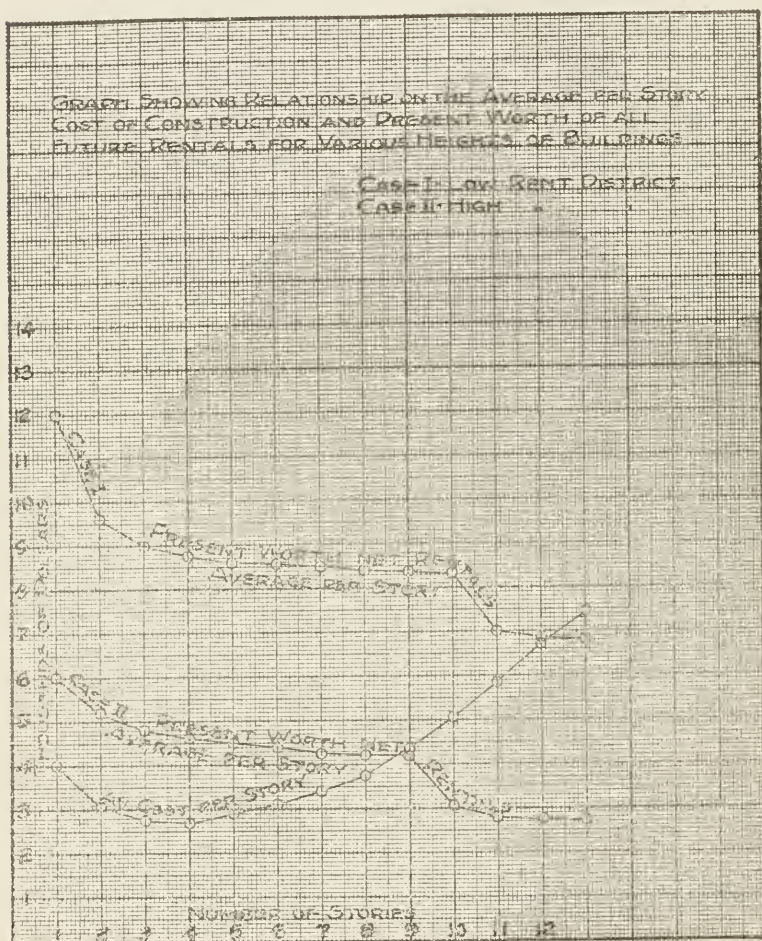 GRAPH SHOWING RELATIONSHIP ON THE AVERAGE PER STORY
COST OF CONSTRUCTION AND PRESENT WORTH OF ALL
FUTURE RENTALS FOR VARIOUS HEIGHTS OF BUILDINGS
CASE I - LOW RENT DISTRICT
CASE II - HIGH " "
14
13
12
11
10
9
8
7
6
5
4
3
2
1
THOUSANDS OF DOLLARS
CASE I
PRESENT WORTH NET RENTALS
AVERAGE PER STORY
CASE II
PRESENT WORTH NET RENTALS
AVERAGE PER STORY
AV. COST PER STORY
NUMBER OF STORIES
1 2 3 4 5 6 7 8 9 10 11 12